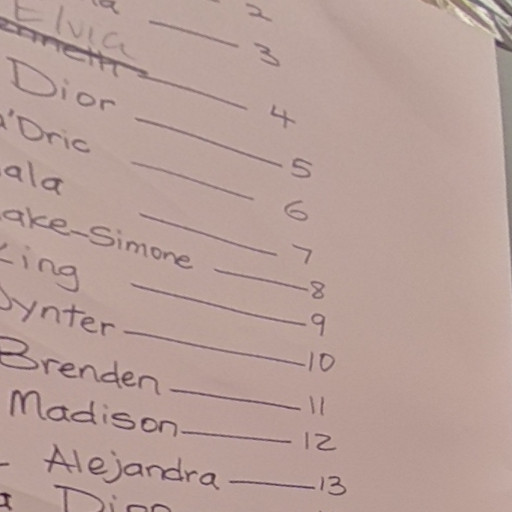 2
Elvia 3
4
Dior 5
'Dric 6
ala 7
ake-Simone 8
ing 9
ynter 10
Brenden 11
Madison 12
Alejandra 13